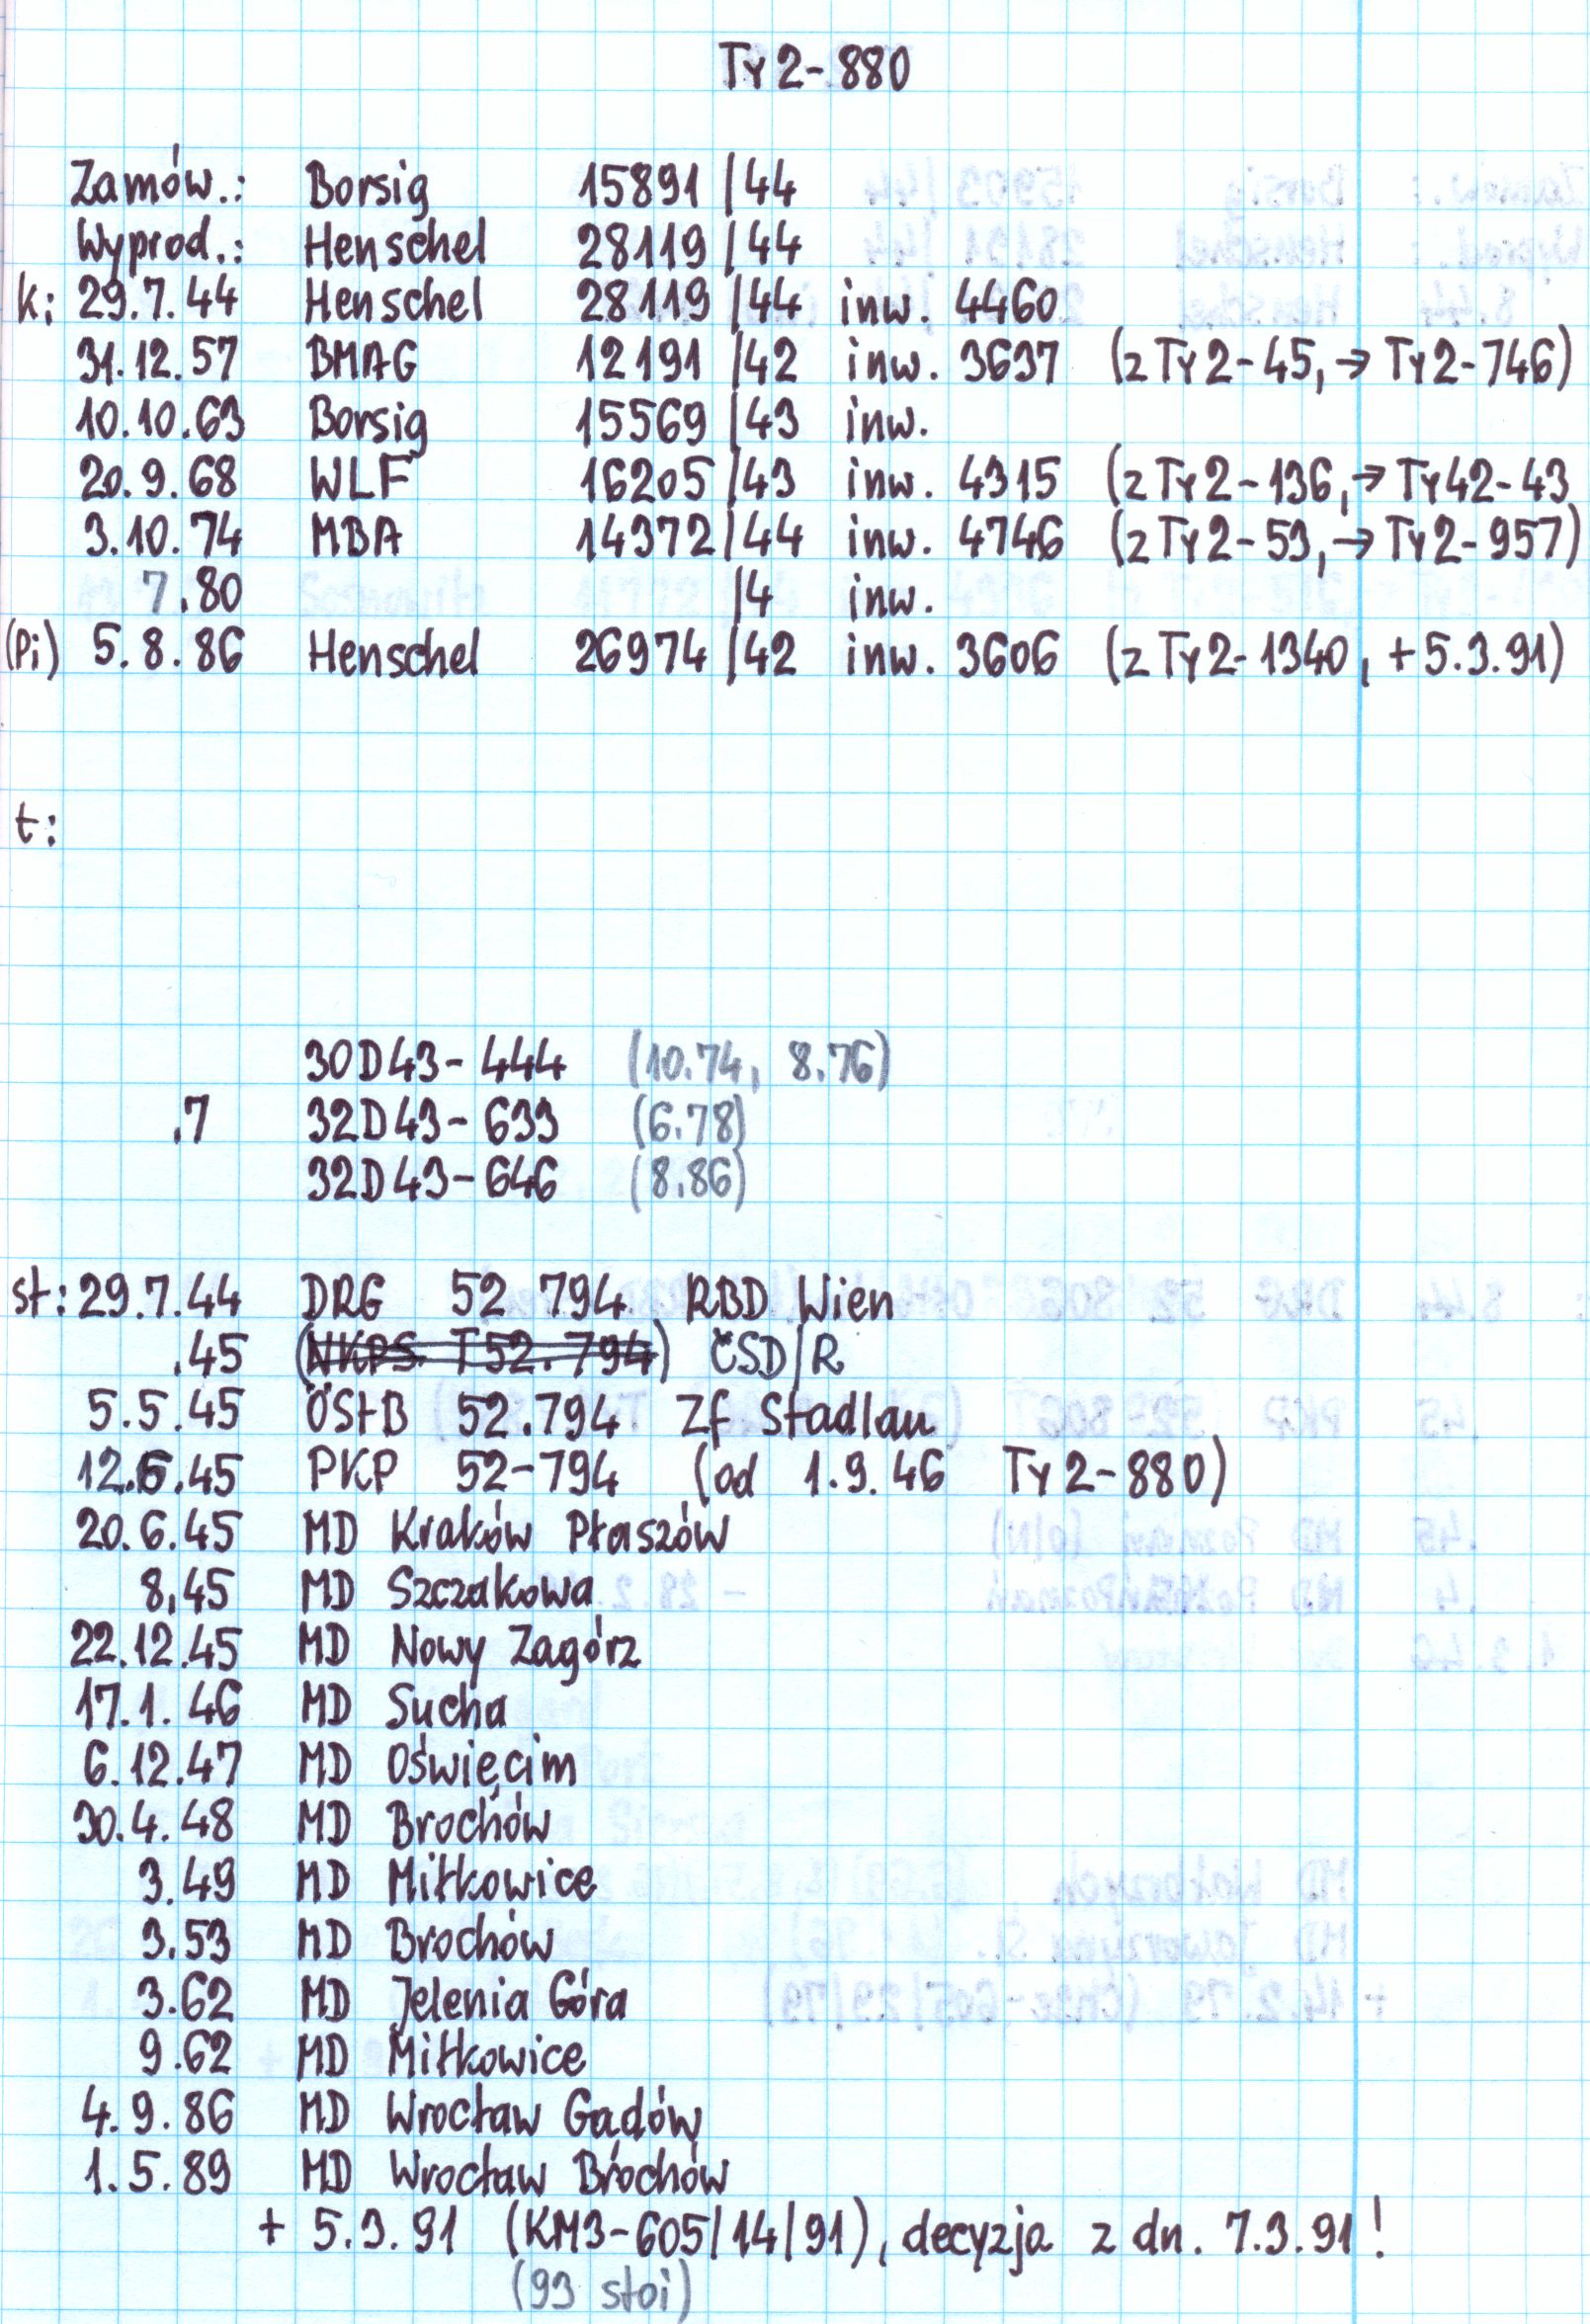 Ty2-880
Zamów.: Borsig 15891/44
Wyprod.: Henschel 28119/44
k: 29.7.44 Henschel 28119/44 inw. 4460
31.12.57 BMAG 12191/42 inw. 3637 (z Ty2-45, → Ty2-746)
10.10.63 Borsig 15569/43 inw.
20.9.68 WLF 16205/43 inw. 4315 (z Ty2-136, → Ty42-43
3.10.74 MBA 14372/44 inw. 4746 (z Ty2-53, → Ty2-957)
7.80 /4 inw.
(Pi) 5.8.86 Henschel 26974/42 inw. 3606 (z Ty2-1340, + 5.3.91)
t:
30D43-444 (10.74, 8.76)
.7 32D43-633 (6.78)
32D43-646 (8.86)
st: 29.7.44 DRG 52 794 RBD Wien
.45 (NKPS T52.794) ČSD/R
5.5.45 ÖStB 52.794 Zf Stadlau
12.6.45 PKP 52-794 (od 1.9.46 Ty2-880)
20.6.45 MD Kraków Płaszów
8.45 MD Szczakowa
22.12.45 MD Nowy Zagórz
17.1.46 MD Sucha
6.12.47 MD Oświęcim
30.4.48 MD Brochów
3.49 MD Miłkowice
3.53 MD Brochów
3.62 MD Jelenia Góra
9.62 MD Miłkowice
4.9.86 MD Wrocław Gądów
1.5.89 MD Wrocław Brochów
+ 5.3.91 (KM3-605/14/91), decyzja z dn. 7.3.91!
(93 stoi)